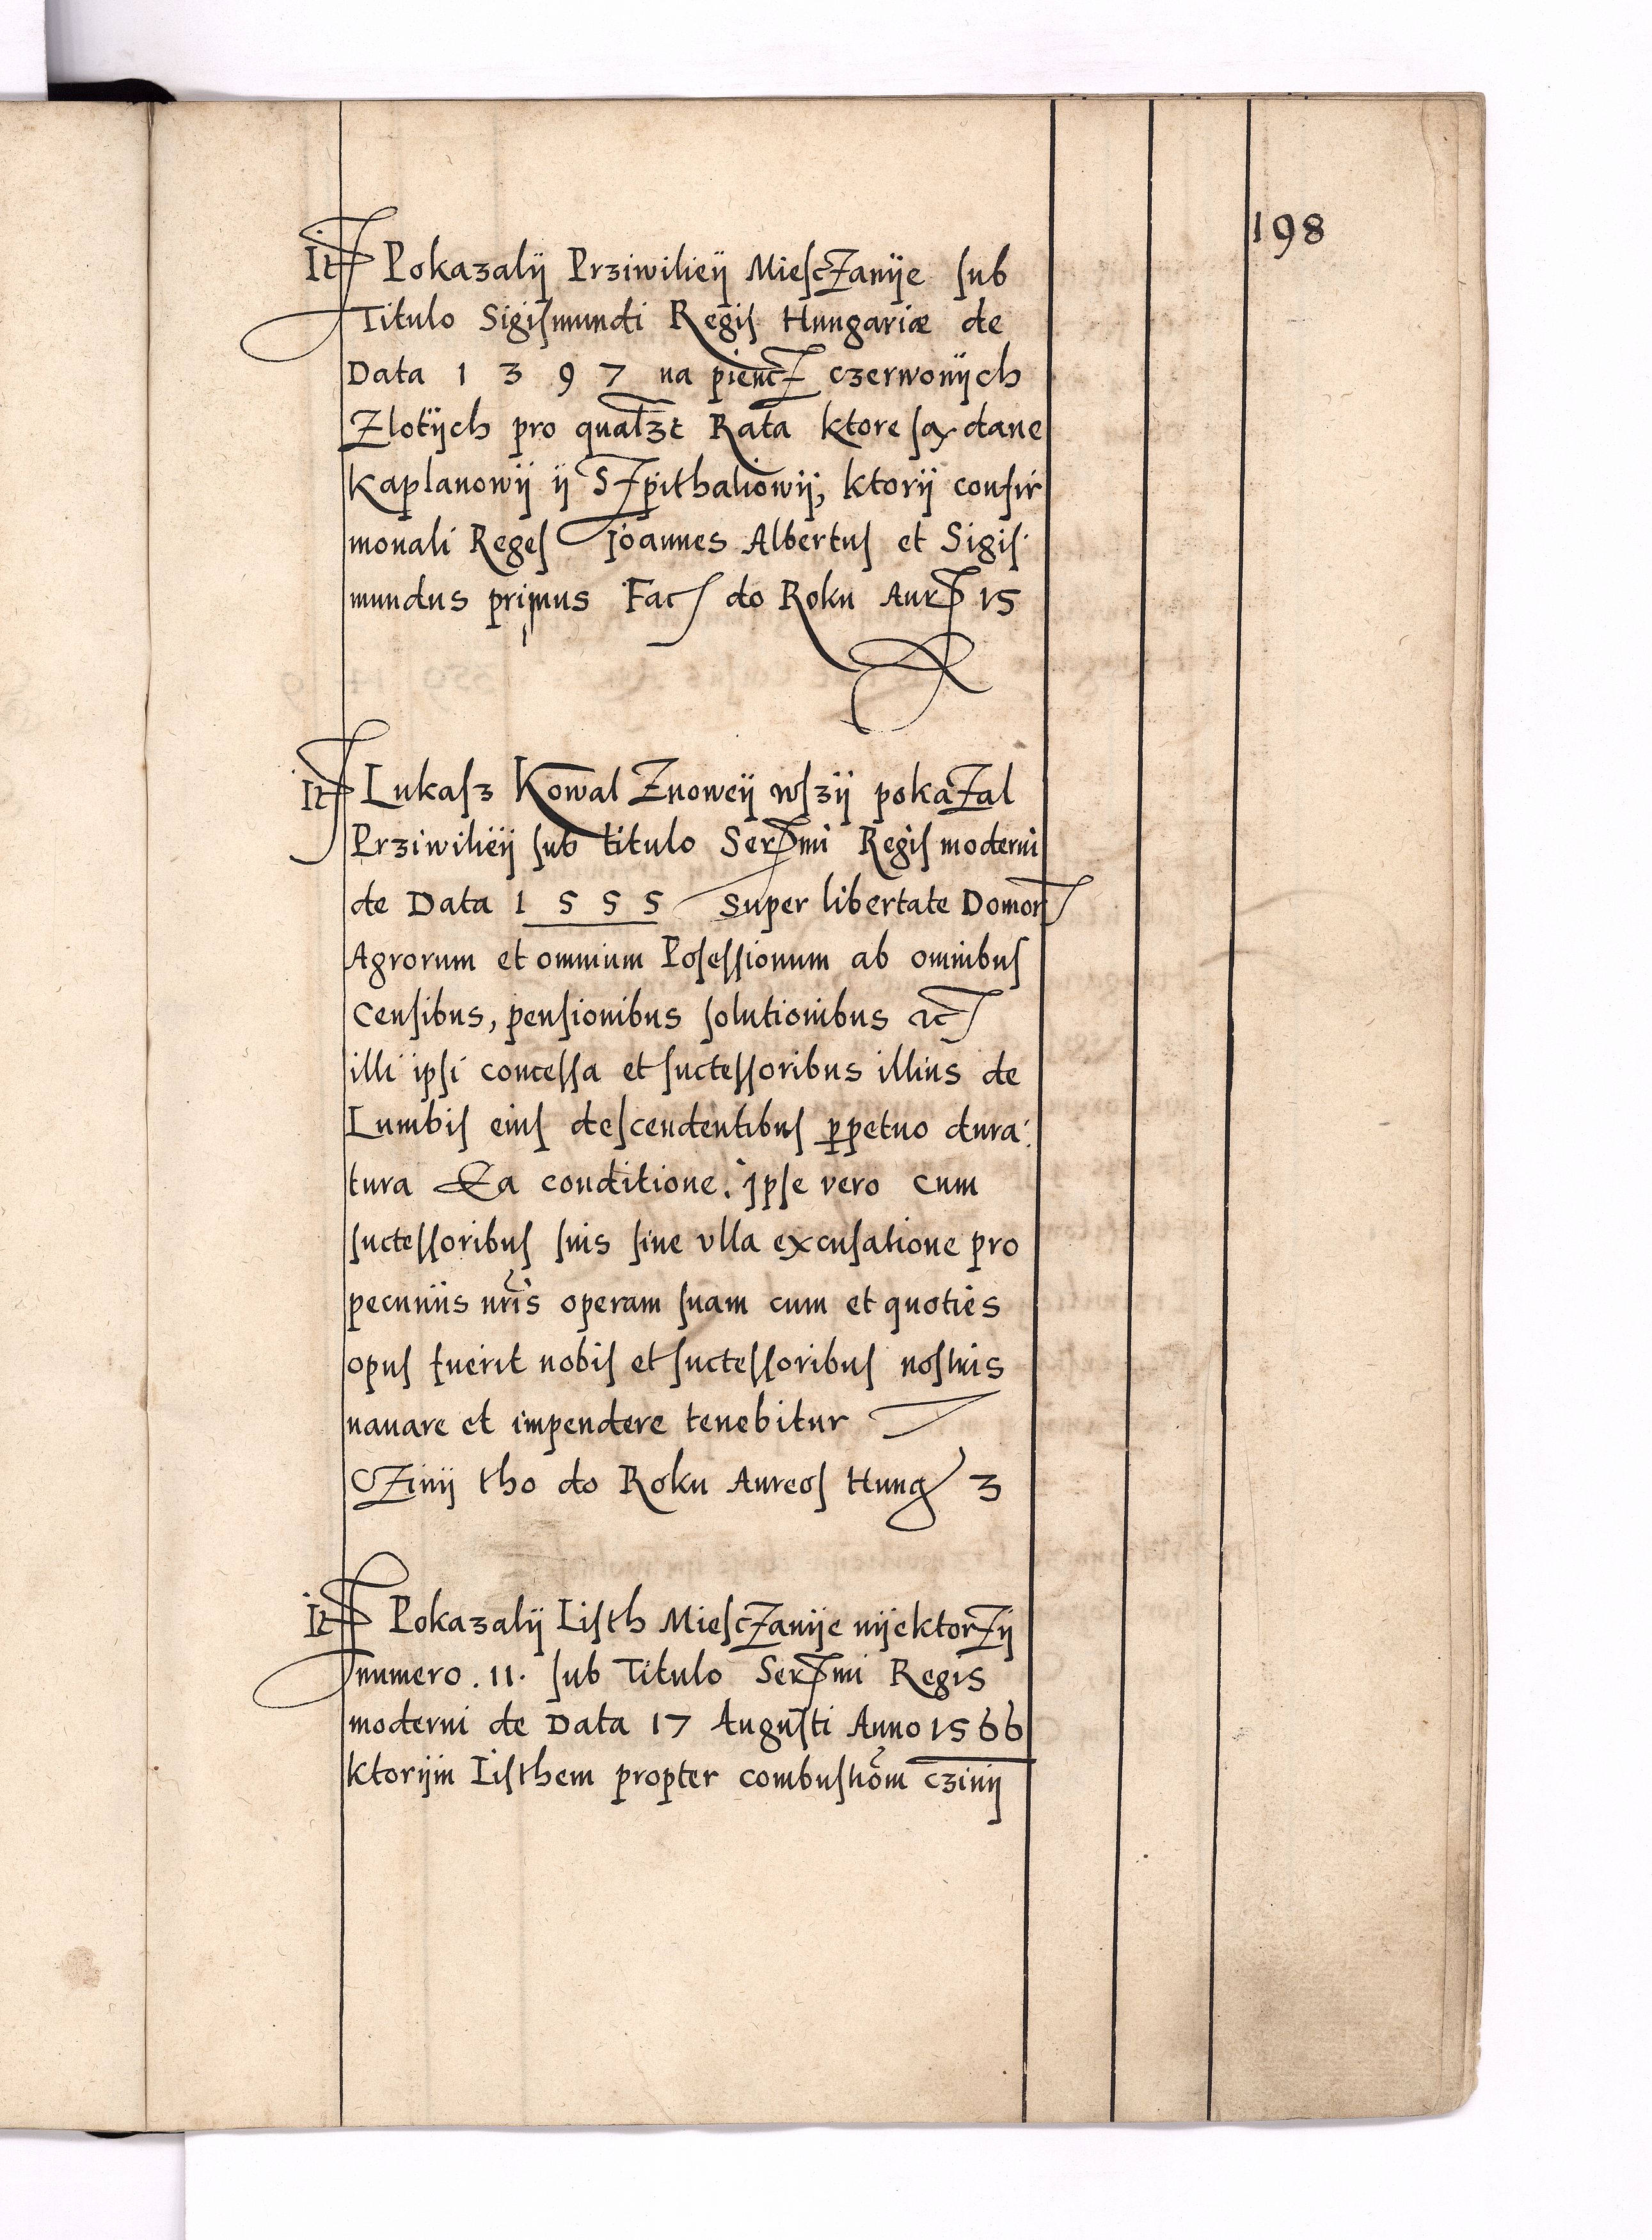 198
It Pokazalÿ Prziwilieÿ Miesczanÿe sub
Titulo Sigismundi Regis Hungariæ de
Data 1 3 9 7 na piencz czerwonÿch
Zlotÿch pro qualzt Rata ktore są dane
kaplanowÿ ÿ Szpithaliowÿ, ktorÿ confir
monali Reges Joannes Albertus et Sigis
mundus primus Fac do Roku Aur 15
It Lukasz Kowal Znoweÿ wszÿ pokazal
Prziwilieÿ sub titulo Sermi Regis moderni
de Data 1 5 5 5 super libertate Domor
Agrorum et omnium Posessionum ab omnibus
Censibus, pensionibus solutionibus ac
illi ipsi concessa et successoribus illius de
Lumbis eius descendentibus ppetuo dura:
tura Ea conditione. jpse vero cum
successoribus suis sine vlla excusatione pro
pecuniis nris operam suam cum et quoties
opus fuerit nobis et successoribus nostris
nauare et impendere tenebitur
Czinÿ tho do Roku Aureos Hung 3
It Pokazalÿ Listh Miesczanÿe nÿektorzÿ
numero . 11 . sub Titulo Sermi Regis
moderni de Data 17 Augusti Anno 1566
ktorÿm Listhem propter combustiom czinÿ